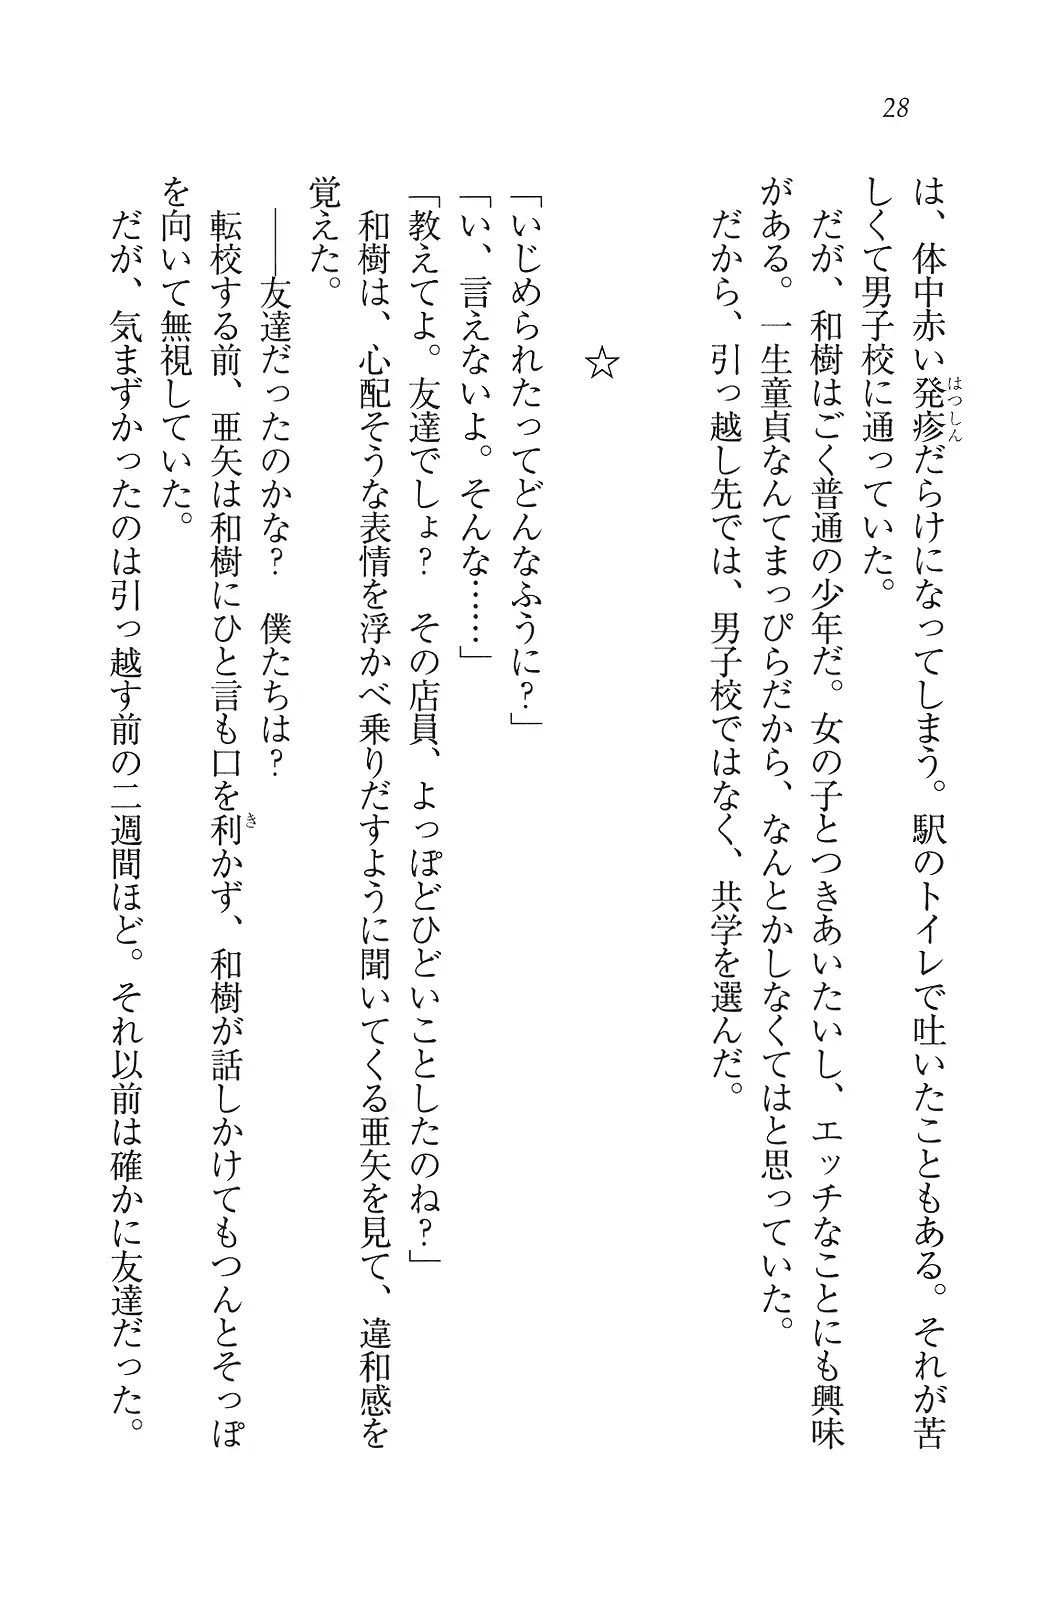 28
は、体中赤い発疹だらけになってしまう。駅のトイレで吐いたこともある。それが苦
はっしん
しくて男子校に通っていた。
だが、和樹はごく普通の少年だ。女の子とつきあいたいし、エッチなことにも興味
がある。一生童貞なんてまっぴらだから、なんとかしなくてはと思っていた。
だから、引っ越し先では、男子校ではなく、共学を選んだ。
☆
「いじめられたってどんなふうに?」
「い、言えないよ。そんな……」
「教えてよ。友達でしょ? その店員、よっぽどひどいことしたのね?」
和樹は、心配そうな表情を浮かべ乗りだすように聞いてくる亜矢を見て、違和感を
覚えた。
――友達だったのかな? 僕たちは?
転校する前、亜矢は和樹にひと言も口を利かず、和樹が話しかけてもつんとそっぽ
き
を向いて無視していた。
だが、気まずかったのは引っ越す前の二週間ほど。それ以前は確かに友達だった。